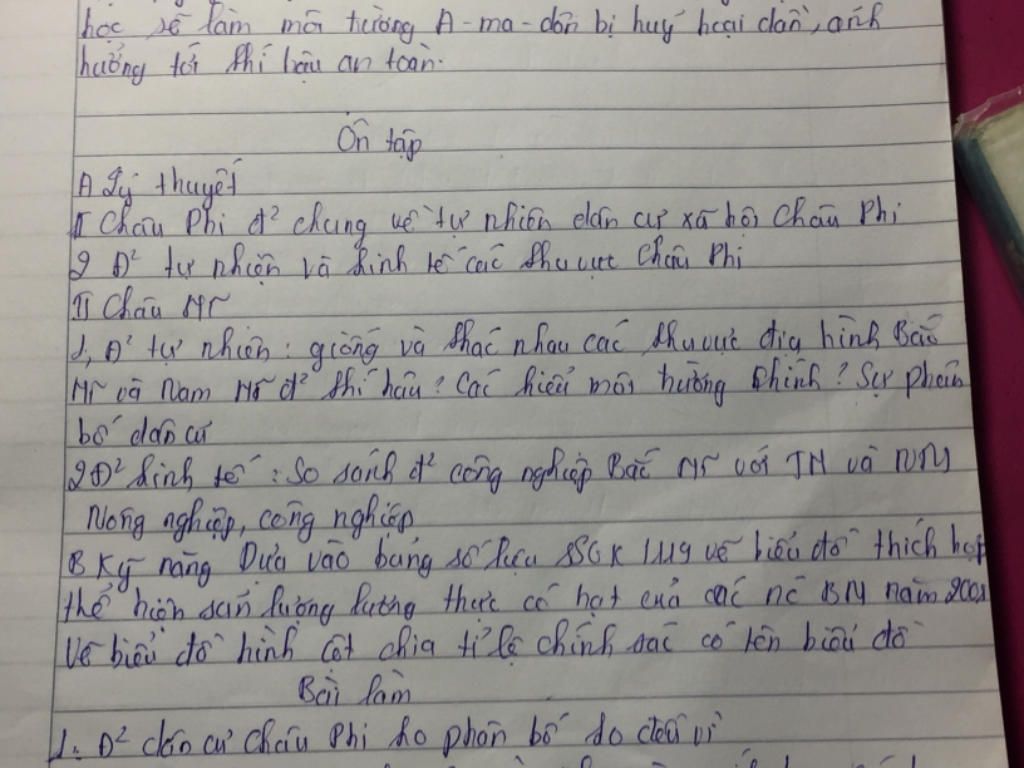 học sẽ làm môi trường A-ma-dôn bị huỷ hoại dần, ảnh
hưởng tới khí hậu an toàn.
Ôn tập
A Lý thuyết
I Châu Phi đ² chung về tự nhiên dân cư xã hội Châu Phi
2 Đ² tự nhiên và kinh tế các khu vực Châu Phi
II Châu Mĩ
1, Đ² tự nhiên : giống và khác nhau các khu vực địa hình Bắc
Mĩ và Nam Mĩ đ² khí hậu? Các kiểu môi trường chính? Sự phân
bố dân cư
2 Đ² kinh tế : So sánh đ² công nghiệp Bắc Mĩ với TN và NM
Nông nghiệp, công nghiệp
B Kỹ năng Dựa vào bảng số liệu SGK 119 vẽ biểu đồ thích hợp
thể hiện sản lượng lương thực có hạt của các nc BM năm 2001
Vẽ biểu đồ hình cột chia tỉ lệ chính sác có tên biểu đồ
Bài làm
1. Đ² dân cư Châu Phi ko phân bố do đều vì